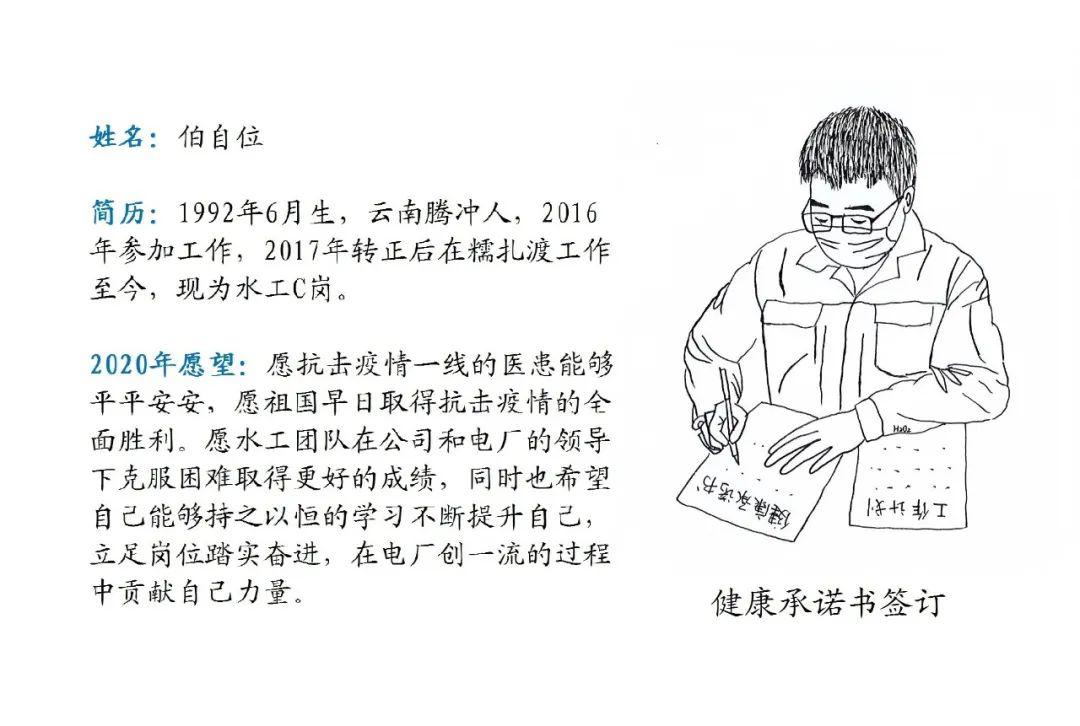 姓名：伯自位
简历：1992年6月生，云南腾冲人，2016
年参加工作，2017年转正后在糯扎渡工作
至今，现为水工C岗。
2020年愿望：愿抗击疫情一线的医患能够
平平安安，愿祖国早日取得抗击疫情的全
面胜利。愿水工团队在公司和电厂的领导
下克服困难取得更好的成绩，同时也希望
自己能够持之以恒的学习不断提升自己，
立足岗位踏实奋进，在电厂创一流的过程
中贡献自己力量。
健康承诺书
工作计划
健康承诺书签订